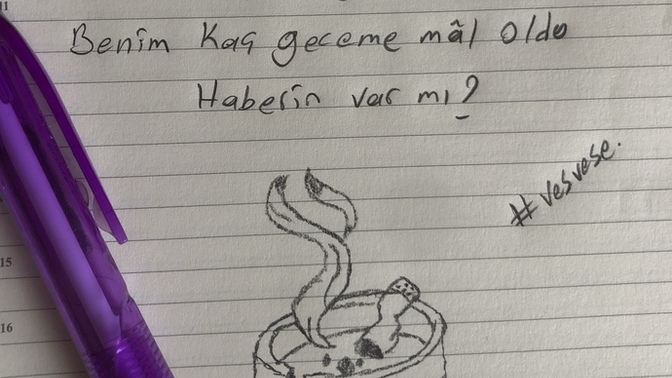 11
Benim Kaç geceme mâl oldu
Haberin var mı?
#vesvese.
15
16